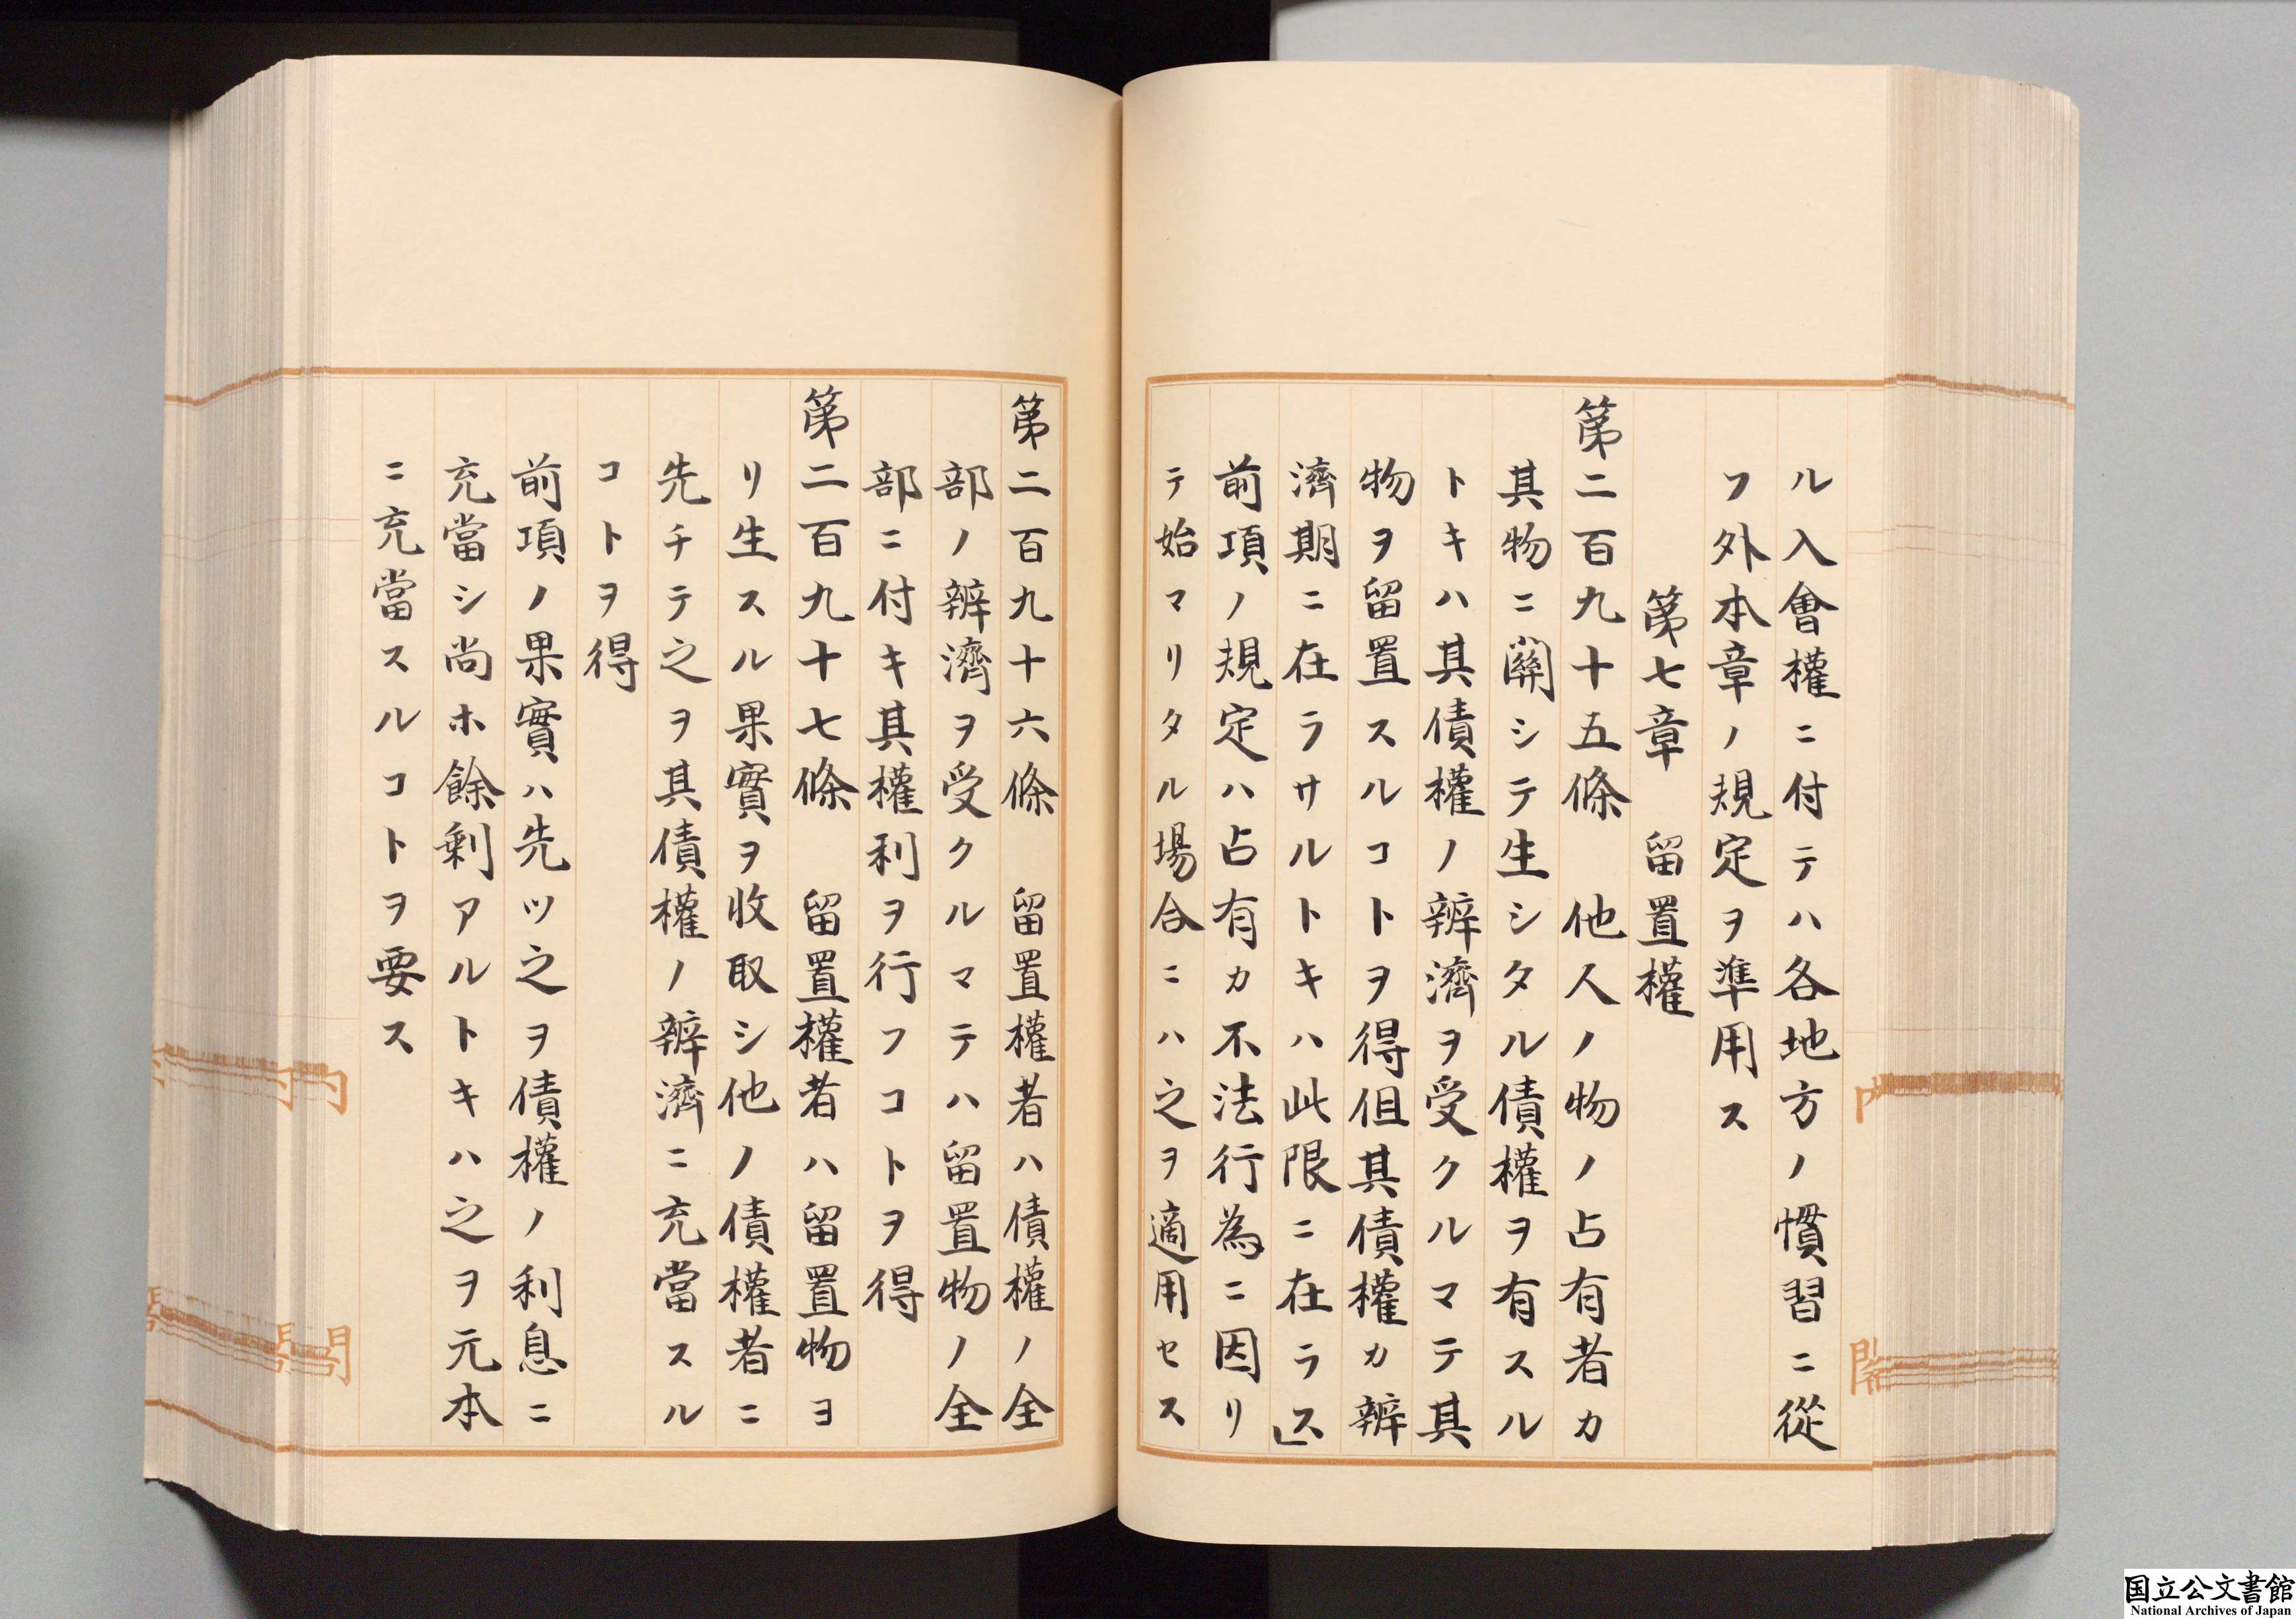 ル入會權ニ付テハ各地方ノ慣習ニ從
フ外本章ノ規定ヲ準用ス
第七章　留置權
第二百九十五條　他人ノ物ノ占有者カ
其物ニ關シテ生シタル債權ヲ有スル
トキハ其債權ノ辨濟ヲ受クルマテ其
物ヲ留置スルコトヲ得但其債權カ辨
濟期ニ在ラサルトキハ此限ニ在ラス
前項ノ規定ハ占有カ不法行為ニ因リ
テ始マリタル場合ニハ之ヲ適用セス
第二百九十六條　留置權者ハ債權ノ全
部ノ辨濟ヲ受クルマテハ留置物ノ全
部ニ付キ其權利ヲ行フコトヲ得
第二百九十七條　留置權者ハ留置物ヨ
リ生スル果實ヲ收取シ他ノ債權者ニ
先チテ之ヲ其債權ノ辨濟ニ充當スル
コトヲ得
前項ノ果實ハ先ツ之ヲ債權ノ利息ニ
充當シ尚ホ餘剩アルトキハ之ヲ元本
ニ充當スルコトヲ要ス
国立公文書館
National Archives of Japan